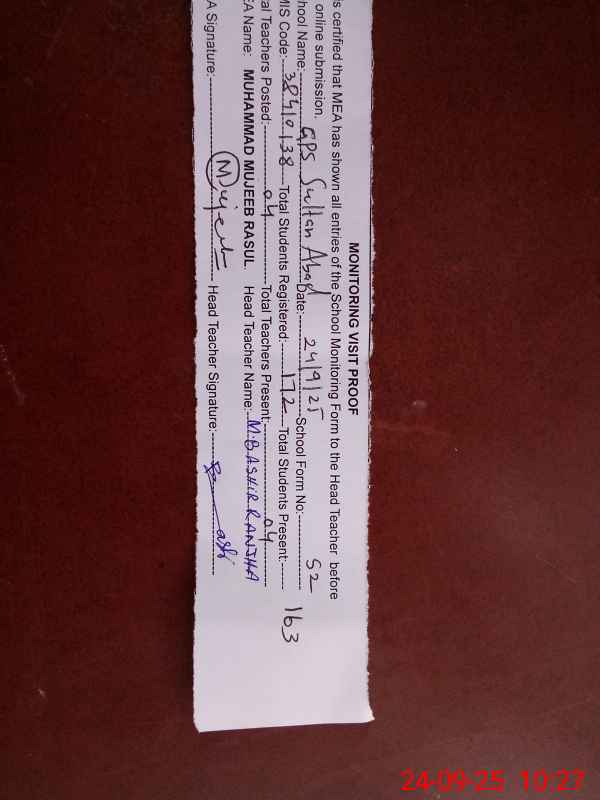 MONITORING VISIT PROOF
is certified that MEA has shown all entries of the School Monitoring Form to the Head Teacher before
online submission.
hool Name: GPS Sultan Abad Date: 24/9/25 School Form No: 52
MIS Code: 38410138 Total Students Registered: 172 Total Students Present: 163
al Teachers Posted: 04 Total Teachers Present: 04
EA Name: MUHAMMAD MUJEEB RASUL Head Teacher Name: M.BASHIR RANJHA
A Signature: Mujeeb Head Teacher Signature:
24-09-25 10:27